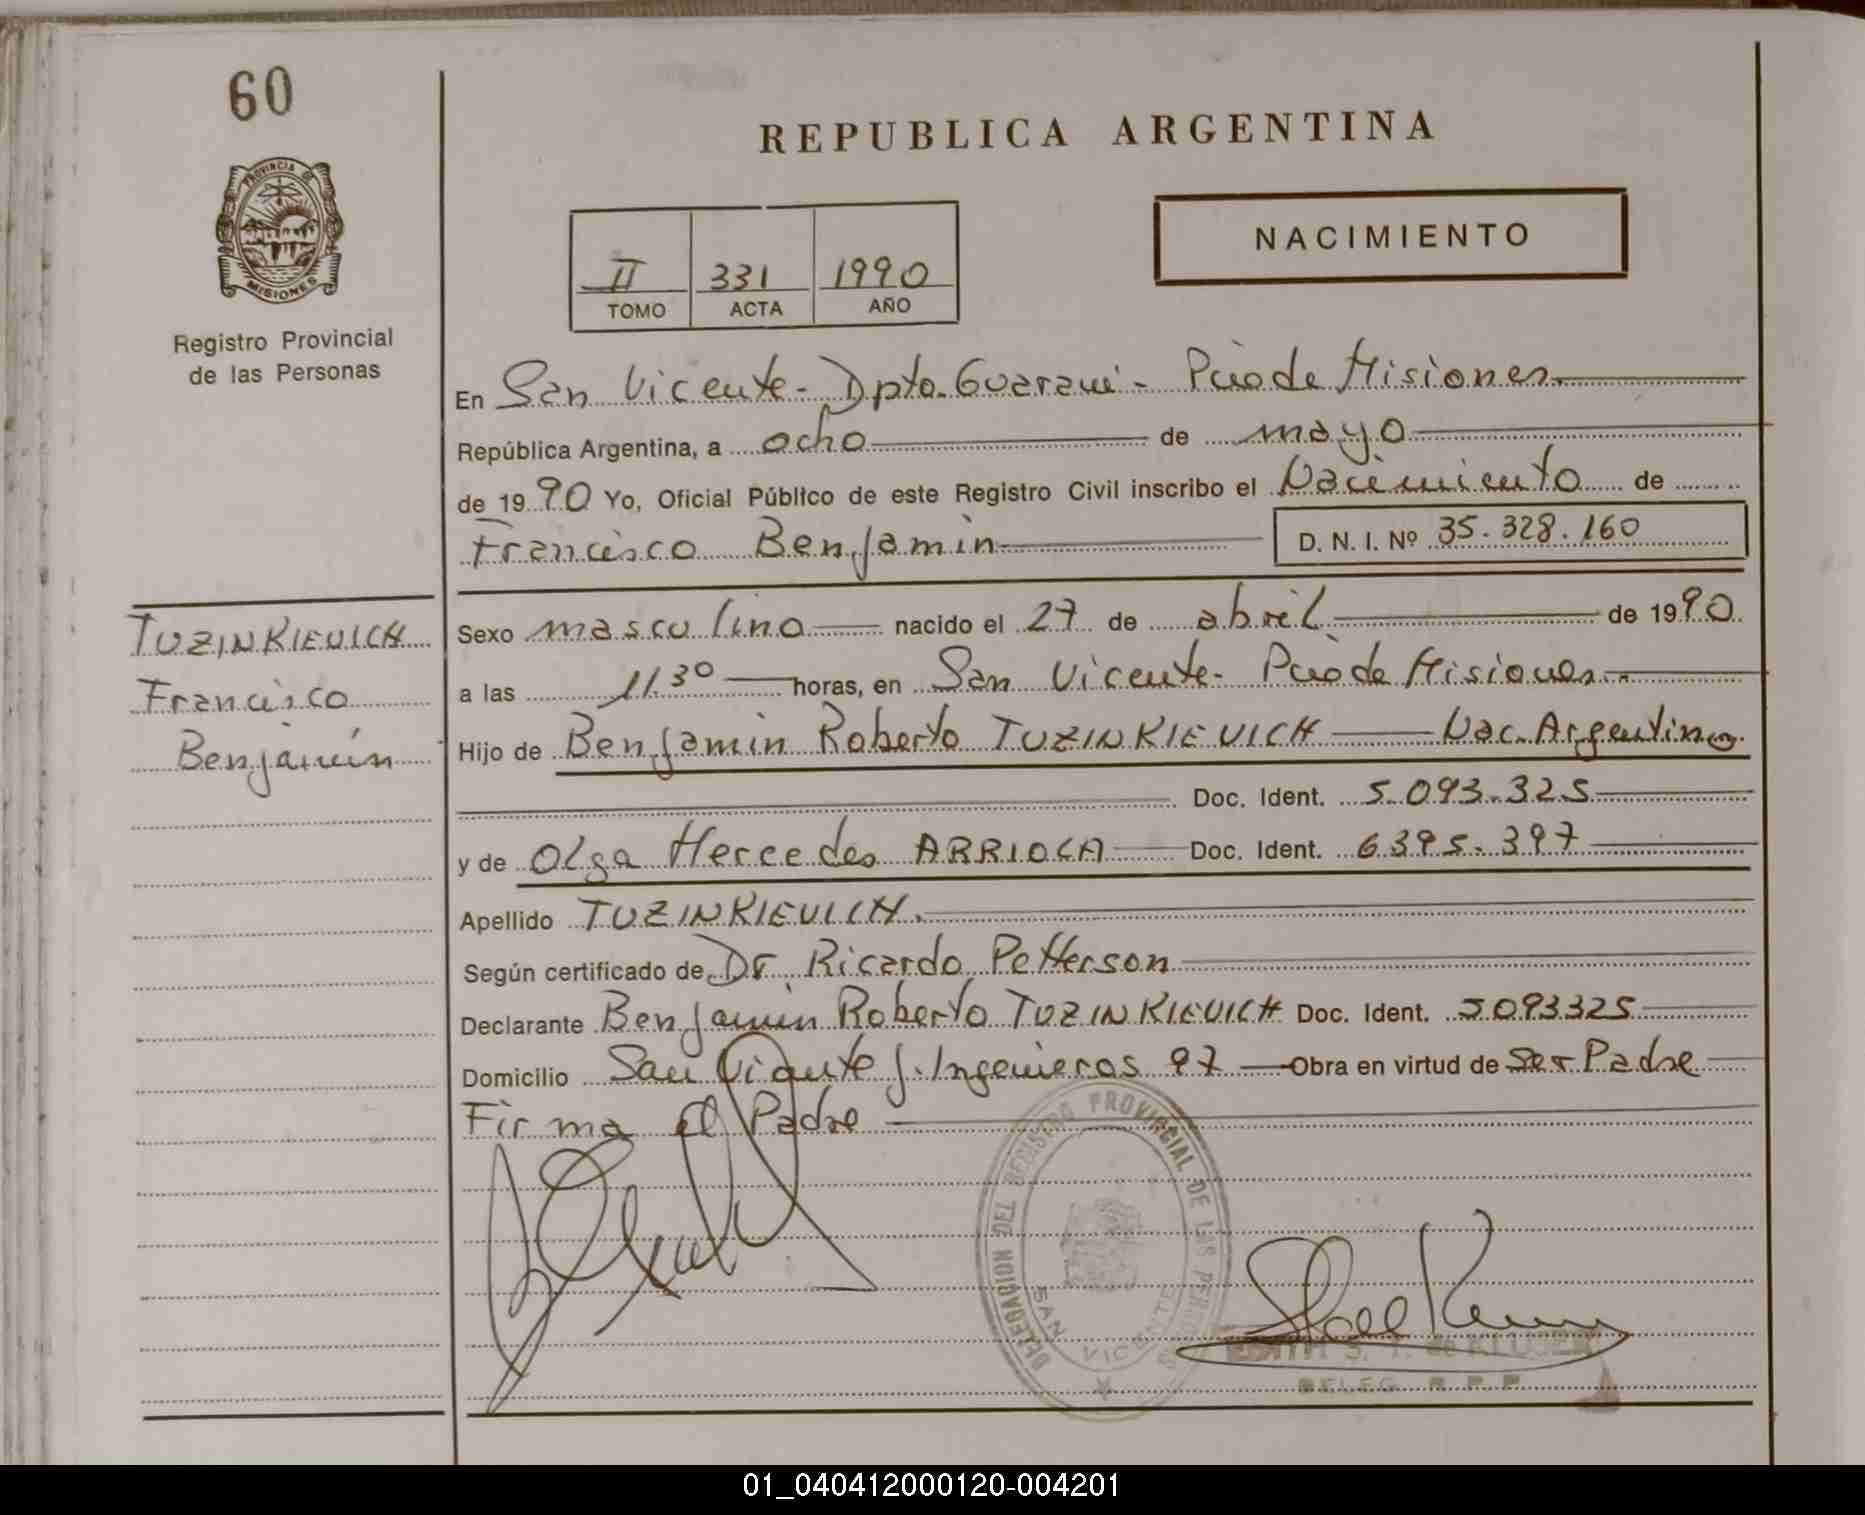 60
REPUBLICA ARGENTINA
PROVINCIA DE
MISIONES
Registro Provincial
de las Personas
NACIMIENTO
II 331 1990
TOMO ACTA AÑO
En San Vicente - Dpto. Guaraní - Pcia de Misiones
República Argentina, a ocho de mayo
de 1990 Yo, Oficial Público de este Registro Civil inscribo el Nacimiento de
Francisco Benjamin D. N. I. Nº 35.328.160
TUZINKIEVICH
Francisco
Benjamín
Sexo masculino nacido el 27 de abril de 1990
a las 11.30 horas, en San Vicente - Pcia de Misiones
Hijo de Benjamin Roberto TUZINKIEVICH Nac. Argentino
Doc. Ident. 5.093.325
y de Olga Mercedes ARRIOLA Doc. Ident. 6395.397
Apellido TUZINKIEVICH
Según certificado de Dr Ricardo Petterson
Declarante Benjamin Roberto TUZINKIEVICH Doc. Ident. 5093325
Domicilio San Vicente J. Ingenieros 97 Obra en virtud de Ser Padre
Firma el Padre
DELEGACION DEL REGISTRO PROVINCIAL DE LAS PERSONAS
SAN VICENTE
EDITH S. T. de
DELEG. R. P. P.
01_040412000120-004201